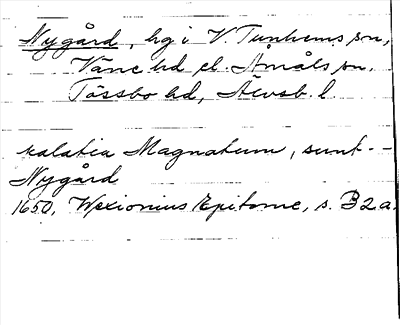 Nygård, hg i V. Tunhems sn,
Väne hd el. Åmåls sn.
Tössbo hd, Älvsb. l.
Palatia Magnatum, sunt --
Nygård
1650, Wexionius Epitome, s. B2a.